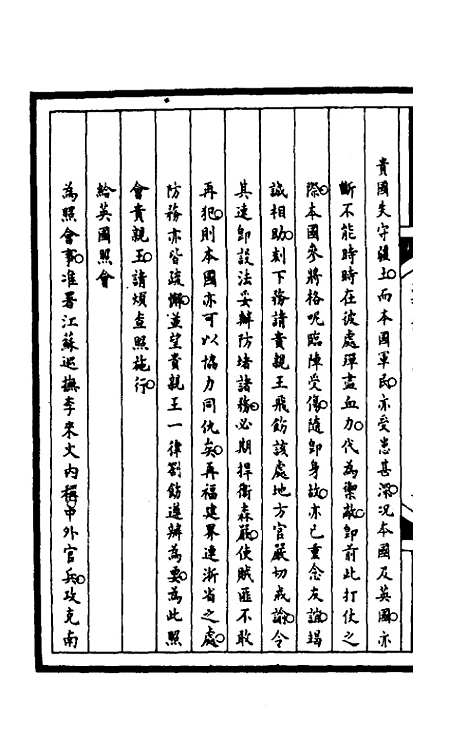 貴國失守疆土。而本國軍民。亦受患甚深。況本國及英國。亦
斷不能時時在彼處殫盡血力。代為禦敵。即前此打仗之
際。本國參將格呢臨陣受傷。隨即身故。亦已重念友誼。竭
誠相助。刻下務請貴親王飛飭該處地方官嚴切戒諭。令
其速即設法妥辦防堵諸務。必期捍衛森嚴。使賊匪不敢
再犯。則本國亦可以協力同仇矣。再福建界連浙省之處。
防務亦皆疏懈。並望貴親王一律劄飭遵辦為要。為此照
會貴親王。請煩查照施行。
給英國照會
為照會事。准署江蘇巡撫李來文內稱。中外官兵。攻克南